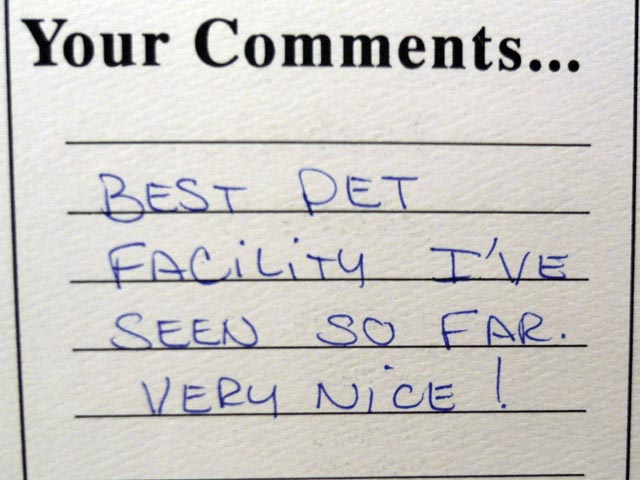 Your Comments...
BEST PET
FACiLiTY I'VE
SEEN SO FAR.
VERY NiCE!